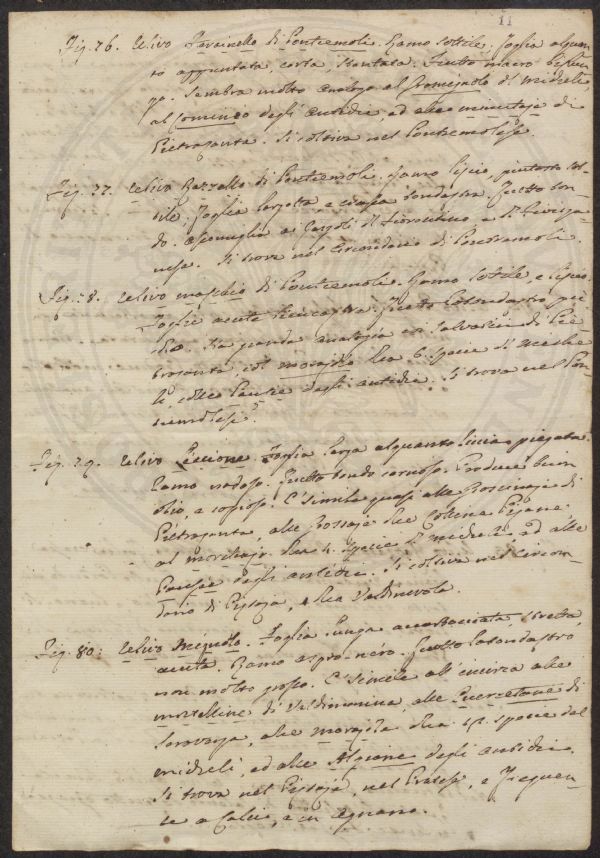 11
Fig. 76. Ulivo Varsinello di Pontremoli. Ramo sottile, Foglia alquan-
to appuntata, corta, stentata. Frutto macro bislun-
go. Sembra molto analogo al Gromignolo di Micheli
al Cominio degli antichi, ed alla minutaja di
Pietrasanta. Si coltiva nel Pontremolese.
Fig. 77. Ulivo Razzallo di Pontremoli. Ramo liscio, piuttosto sot-
tile. Foglia larghetta, e tondastra. Frutto ton-
do. Somiglia a Razzoli
Si trova nel Circondario di Pontremoli.
Fig. 78. Ulivo maschio di Pontremoli. Ramo sottile, e liscio.
Foglie acuta Frutto rotondastro pic-
colo. Ha grande analogia con Salvatico di Pie-
trasanta, col morajolo della 6. specie di Miche-
li, colle Pausie degli antichi. Si trova nel Pon-
tremolese.
Fig. 79. Ulivo Leccione. Foglia larga alquanto liscia, piegata.
Ramo nodoso. Frutto tondo carnoso. Produce buon
olio, e copioso. È simile quasi alle di
Pietrasanta, alle Rossaje delle Colline Pisane,
al morchiajo della 4. specie di Micheli, ed alle
Pausie degli antichi. Si coltiva nel Circon-
dario di Pistoja, e della Valdinievole.
Fig. 80. Ulivo Mignolo. Foglia lunga accartocciata, stretta,
acuta. Ramo aspro nero. Frutto rotondastro,
non molto grosso. È simile all' incirca alle
mortelline di Valdinievole, alle Quercetane di
Seravezza, alle morajola della 12. specie del
Micheli, ed alle Algiane degli antichi.
Si trova nel Pistoje, nel Pratese, e frequen-
te a Calci, e in Agnano.